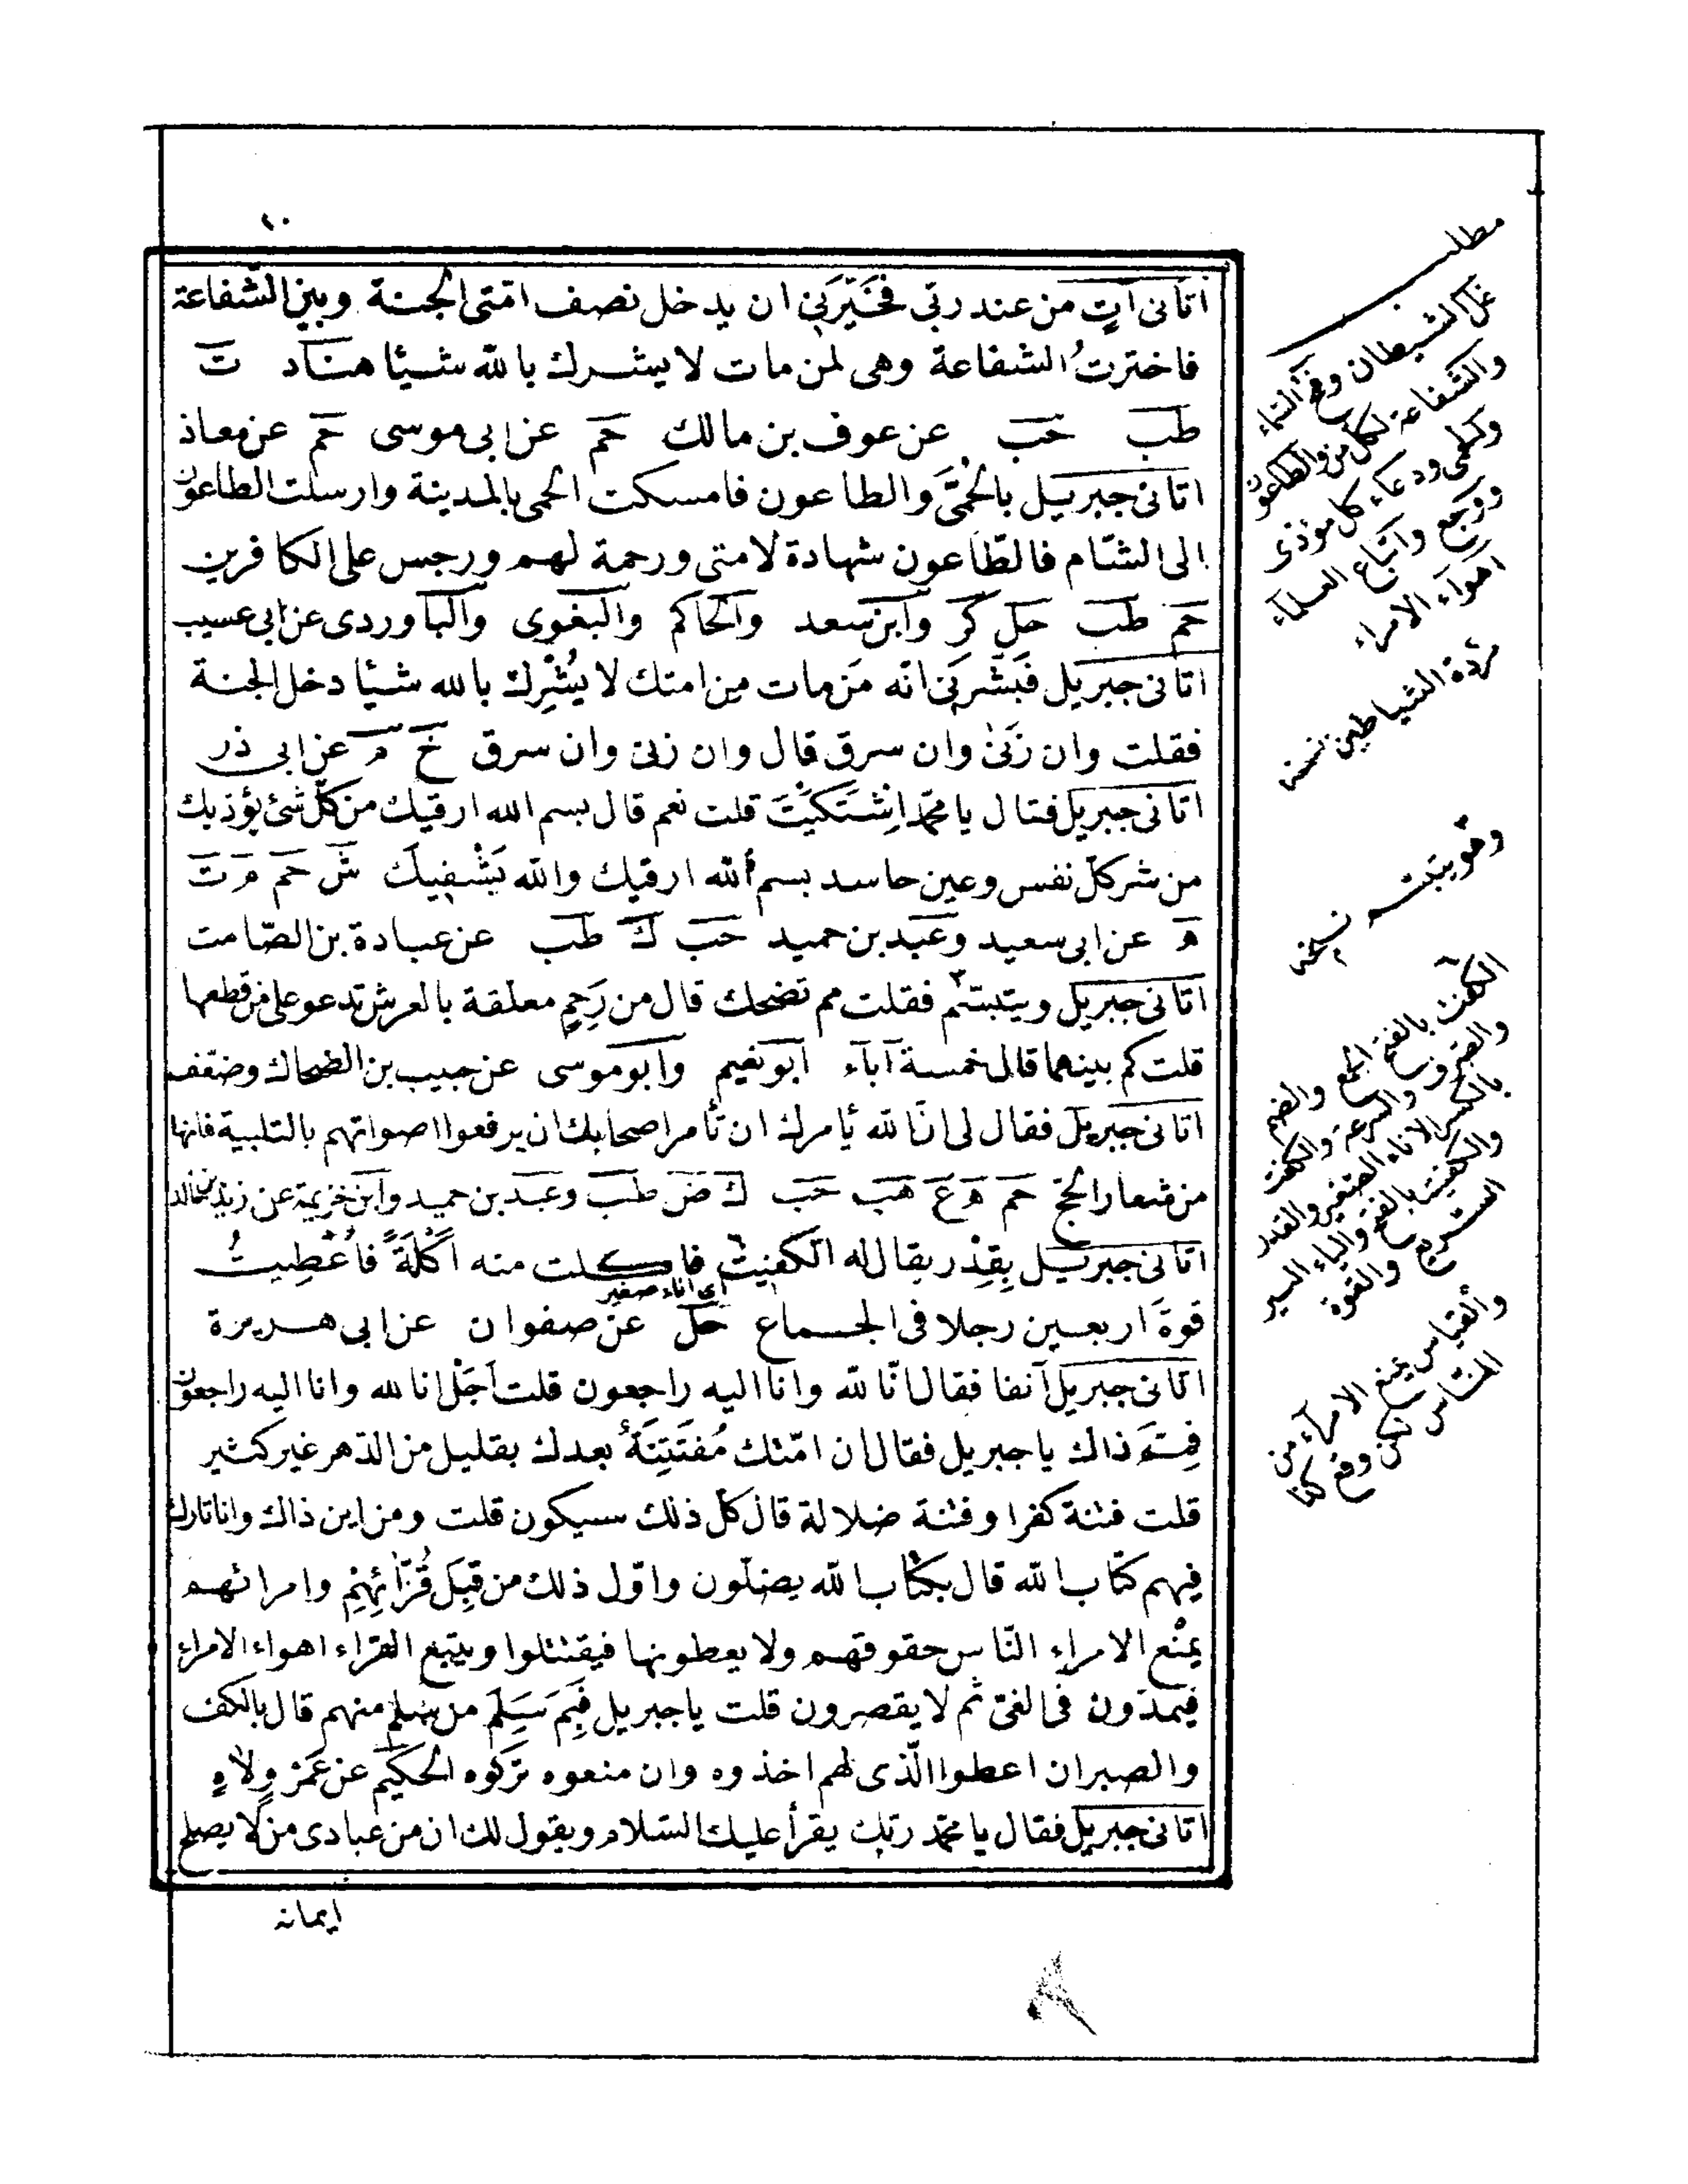 ١٠
اتانى آتٍ من عند ربى فخَيَّرَنِى ان يدخل نصف امّتى الجنة وبين الشّفاعة
فاخترتُ الشفاعة وهى لمن مات لا يشرك بالله شيئا هناد ت
طب حب عن عوف بن مالك حم عن ابى موسى حم عن معاذ
اتانى جبريل بالحُمَّى والطاعون فامسكت الحمى بالمدينة وارسلت الطاعون
الى الشام فالطّاعون شهادة لامتى ورحمة لهم ورجس على الكافرين
حم طب حل كر وابن سعد والحاكم والبغوى والباوردى عن ابى عسيب
اتانى جبريل فَبَشَّرَنِى انّه مَن مات من امتك لا يُشْرِك بالله شيئا دخل الجنة
فقلت وان زَنَىٰ وان سرق قال وان زنى وان سرق خ م عن ابى ذر
اتانى جبريل فقال يا محمّد اِشْتَكَيْتَ قلت نعم قال بسم الله ارقيك من كلّ شئ يؤذيك
من شر كلّ نفس وعين حاسد بسم الله ارقيك والله يَشْفِيكَ ش حم م ت
ه عن ابى سعيد وعبد بن حميد حب ك طب عن عبادة بن الصّامت
اتانى جبريل ويتبسّم فقلت مم تضحك قال من رَحِمٍ معلقة بالعرش تدعو على من قطعها
قلت كم بينهما قال خمسة آباء ابو نعيم وابو موسى عن حبيب بن الضحاك وضعّف
اتانى جبريل فقال لى انّ الله يأمرك ان تأمر اصحابك ان يرفعوا اصواتهم بالتلبية فانها
من شعار الحج حم ه ع هب حب ك ض طب وعبد بن حميد وابن خزيمة عن زيد بن خالد
اتانى جبريل بِقِدْر يقال له الكفيت فاكلت منه اَكْلَةً فاُعْطِيتُ
اى اناء صغير
قوةَ اربعين رجلا فى الجماع حل عن صفوان عن ابى هريرة
اتانى جبريل آنفا فقال انّا لله وانا اليه راجعون قلت اَجَلْ انا لله وانا اليه راجعون
فمِمَّ ذاك يا جبريل فقال ان امّتك مُفتَتِنَةٌ بعدك بقليل من الدهر غير كثير
قلت فتنة كفر او فتنة ضلالة قال كلّ ذلك سيكون قلت ومن اين ذاك وانا تارك
فيهم كتاب الله قال بكتاب الله يضلّون واوّل ذلك من قِبَلِ قُرّائِهِمْ وامرائهم
يمْنع الامراء النّاس حقوقهم ولا يعطونها فيقتتلوا ويتبع القراء اهواء الامراء
فيمدّون فى الغى ثم لا يقصرون قلت يا جبريل فَبِمَ سَلِمَ من سلم منهم قال بالكف
والصبر ان اعطوا الّذى لهم اخذوه وان منعوه تركوه الحكيم عن عمر ولاهٍ
اتانى جبريل فقال يا محمّد ربّك يقرأ عليك السّلام ويقول لك ان من عبادى من لا يصلح
ايمانه
مطلب
والشفاعة
وكل مؤذى
ووجع واتباع العلماء
اهواء الامراء
مردة الشياطين نسخه
وهو يتبسّم نسخه
والضم
بالكسر الاناء الصغير والقدر
السريع والقوة
والقياس يمنع الامراء من
الناس لكن وقع كذا